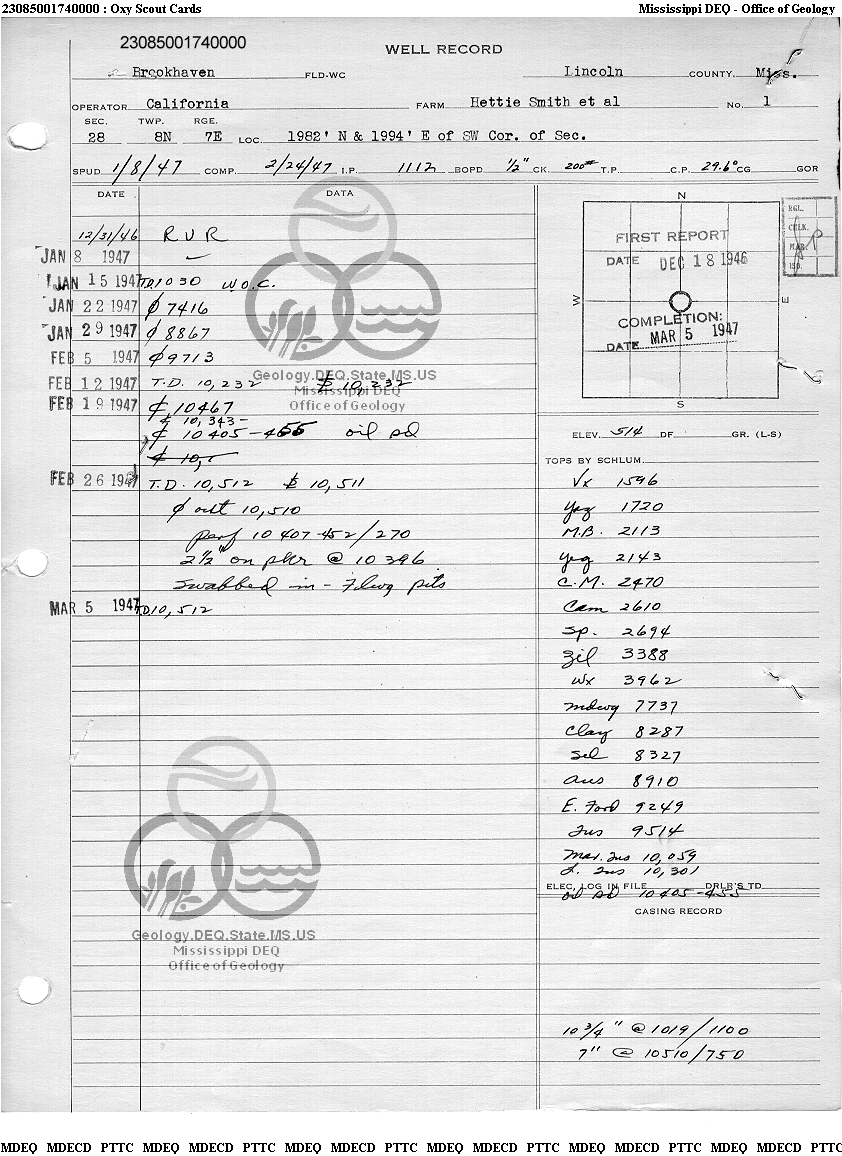 23085001740000 : Oxy Scout Cards Mississippi DEQ - Office of Geology
23085001740000
WELL RECORD
Brookhaven FLD-WC Lincoln COUNTY, Miss.
OPERATOR California FARM Hettie Smith et al No. 1
SEC. TWP. RGE.
28 8N 7E LOC. 1982' N & 1994' E of SW Cor. of Sec.
SPUD 1/8/47 COMP. 2/24/47 I.P. 1112 BOPD ½" CK. 200# T.P. C.P. 29.6° CG GOR
DATE DATA
12/31/46 RUR
JAN 8 1947
JAN 15 1947 TD1030 W.O.C.
JAN 22 1947 ₵ 7416
JAN 29 1947 ₵ 8867
FEB 5 1947 ₵ 9713
FEB 12 1947 T.D. 10,232 10,232
FEB 19 1947 ₵ 10467
10,343-
₵ 10405-455 oil sd
₵ 10,
FEB 26 1947 T.D. 10,512 10,511
10,510
perf 10407-452/270
2½" on pkr @ 10396
Swabbed in - Flwg pits
MAR 5 1947 TD10,512
Geology.DEQ.State.MS.US
Mississippi DEQ
Office of Geology
Geology.DEQ.State.MS.US
Mississippi DEQ
Office of Geology
N
W
E
S
FIRST REPORT
DATE DEC 18 1946
COMPLETION:
DATE MAR 5 1947
RGL.
CHK.
MAP.
ISD.
ELEV. 514 DF. GR. (L-S)
TOPS BY SCHLUM.
Vx 1596
Yaz 1720
M.B. 2113
Yeg 2143
C.M. 2470
Cam 2610
Sp. 2694
Zil 3388
Wx 3962
Mdwg 7737
Clay 8287
Sel 8327
Aus 8910
E. Ford 9249
Tus 9514
Mar. Tus 10,059
L. Tus 10,301
ELEC. LOG IN FILE DRLR'S TD
oil sd 10405-455
CASING RECORD
10 ¾" @ 1019/1100
7" @ 10510/750
MDEQ MDECD PTTC MDEQ MDECD PTTC MDEQ MDECD PTTC MDEQ MDECD PTTC MDEQ MDECD PTTC MDEQ MDECD PTTC